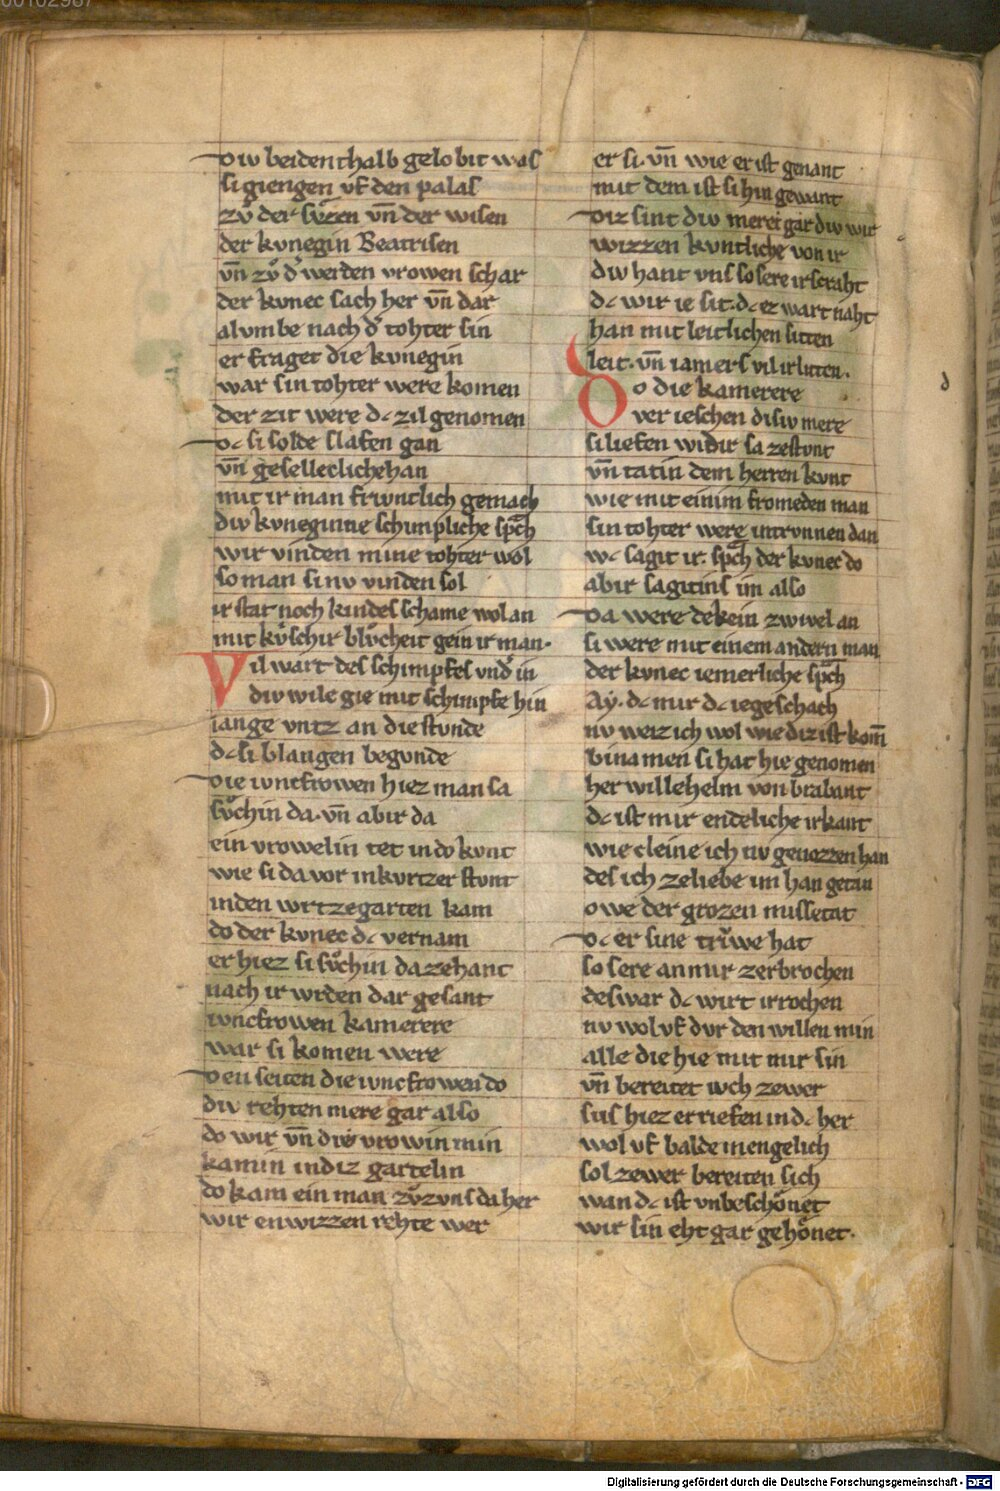 00102987
Div beidenthalb gelobit was
si giengen vf den palas
zv̊ der sv̊zen vn̄ der wisen
der kvnegin Beatrisen
vn̄ zv̊ d' werden vrowen schar
der kvnec sach her vn̄ dar
alvmbe nach d' tohter sin
er fraget die kvnegin
war sin tohter were komen
der zit were dc zil genomen
Dc si solde slafen gan
vn̄ geselleclichehan
mit ir man frivntlich gemach
div kvneginne schimpliche sp̄ch
wir vinden mine tohter wol
so man si nv vinden sol
ir stat noch kindes schame wol an
mit kv̊schir blv̊cheit gein ir man.
Vil wart des schimpfes vnd' in
div wile gie mit schimpfe hin
lange vntz an die stvnde
dc si blangen begvnde
Die ivncfrowen hiez man sa
sv̊chin da. vn̄ abir da
ein vrowelin tet in do kvnt
wie si da vor in kvrtzer stvnt
in den wrtzegarten kam
do der kvnec dc vernam
er hiez si sv̊chin da zehant
nach ir wrden dar gesant
ivncfrowen kamerere
war si komen were
Den seiten die ivncfrowen do
div rehten mere gar also
do wir vn̄ div vrowin min
kamin in diz gartelin
do kam ein man zv̊zvns da her
wir enwizzen rehte wer
er si. vn̄ wie er ist genant
mit dem ist si hin gewant
Diz sint div merei gar div wir
wizzen kvntliche von ir
div hant vns so sere irscraht
dc wir ie sit. dc ez wart naht
han mit leitlichen sitten
leit. vn̄ iamers vil irlitten.
Do die kamerere
ver ieschen disiv mere
si liefen widir sa zestvnt
vn̄ tatin dem herren kvnt
wie mit einim fromeden man
sin tohter were intrvnnen dan
wc sagit ir. sp̄ch der kvnec do
abir sagitins im also
Da were dekein zwivel an
si were mit einem andern man
der kvnec iemerliche sp̄ch
Ay. dc mir dc ie geschach
nv weiz ich wol wie diz ist kom̄
binamen si hat hie genomen
her willehelm von brabant
dc ist mir endeliche irkant
wie cleine ich nv genozzen han
des ich zeliebe im han getan
owe der grozen missetat
Dc er sine triwe hat
so sere an mir zerbrochen
deswar dc wirt irrochen
nv wol vf dvr den willen min
alle die hie mit mir sin
vn̄ bereitet ivch zewer
sus hiez er riefen in dc her
wol vf balde mengelich
sol zewer bereiten sich
wan dc ist vnbeschönet
wir sin eht gar gehönet.
Digitalisierung gefördert durch die Deutsche Forschungsgemeinschaft - DFG